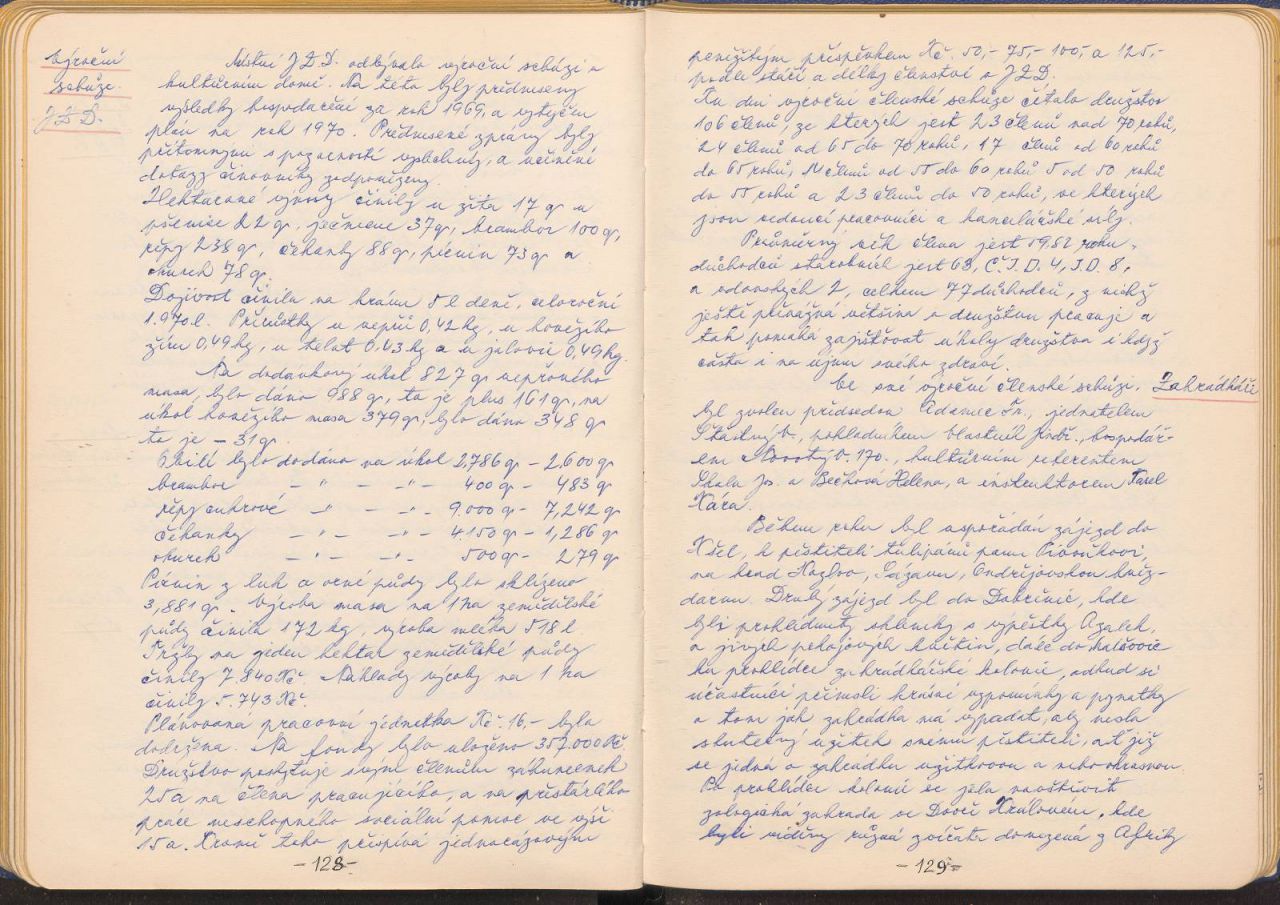 Výroční
schůze
J.Z.D.
Místní J.Z.D. odbývalo výroční schůzi v
kulturním domě. Na této byly předneseny
výsledky hospodaření za rok 1969, a vytyčen
plán na rok 1970. Přednesené zprávy byly
přítomnými s pozorností vyslechnuty, a učiněné
dotazy činovníky zodpovězeny.
Hektarové výnosy činily u žita 17 q u
pšenice 22 q, ječmene 37 q, brambor 100 q,
řepy 238 q, čekanky 88 q, pícnin 73 q a
okurek 78 q.
Dojivost činila na krávu 5 l deně, celoroční
1.970 l. Přírůstky u vepřů 0,42 kg, u hovězího
žíru 0,49 kg, u telat 0,43 kg a u jalovic 0,49 kg.
Na dodávkový úkol 827 q vepřového
masa, bylo dáno 988 q, to je plus 161 q, na
úkol hovězího masa 379 q, bylo dáno 348 q
to je - 31 q.
Obilí bylo dodáno na úkol 2,786 q - 2,600 q
brambor - " - - " - 400 q - 483 q
řepy cukrové - " - - " - 9.000 q - 7,242 q
čekanky - " - - " - 4.150 q - 1,286 q
okurek - " - - " - 500 q - 279 q
Pícnin z luk a orné půdy bylo sklizeno
3,881 q. Výroba masa na 1 ha zemědělské
půdy činila 172 kg, výroba mléka 518 l.
Tržby na jeden hektar zemědělské půdy
činily 7.840 Kč. Náklady výroby na 1 ha
činily 5.743 Kč.
Plánovaná pracovní jednotka Kč. 16,- byla
dodržena. Na fondy bylo uloženo 357.000 Kč.
Družstvo poskytuje svým členům záhumenek
25 a na člena pracujícího, a na přestárlého
práce neschopného sociální pomoc ve výši
15 a. Kromě toho přispívá jednorázovým
- 128 -
peněžitým příspěvkem Kč. 50,- 75,- 100,- a 125,-
podle stáří a délky členství v J.Z.D.
Ku dni výroční členské schůze čítalo družstvo
106 členů, ze kterých jest 23 členů nad 70 roků,
24 členů od 65 do 70 roků, 17 členů od 60 roků
do 65 roků, 14 členů od 55 do 60 roků 5 od 50 roků
do 55 roků a 23 členů do 50 roků, ve kterých
jsou vedoucí pracovníci a kancelářské síly.
Průměrný věk člena jest 59,82 roku,
důchodců starobních jest 63, Č.I.D. 4, I.D. 8,
a vdovských 2, celkem 77 důchodců, z nichž
ještě převážná většina v družstvu pracuje a
tak pomáhá zajišťovat úkoly družstva i když
často i na újmu svého zdraví.
Ve své výroční členské schůzi,
Zahrádkáři
byl zvolen předsedou Adamec Fr., jednatelem
Šťastný V., pokladníkem Vlastník Jindř., hospodář-
em Novotný V. 170., kulturním referentem
Skala Jos. a Bečková Helena, a instruktorem Karel
Kára.
Během roku byl uspořádán zájezd do
Kšel, k pěstiteli tulipánů panu Pivoňkovi,
na hrad Sázavu, Ondřejovskou hvěz-
dárnu. Druhý zájezd byl do Dobřenic, kde
byli prohlédnuty skleníky s výpěstky Azalek,
a jiných pokojových květin, dále do
ku prohlídce zahrádkářské kolonie, odkud si
účastníci přinesli krásné vzpomínky a pynatky
o tom jak zahrádka má vypadat, aby nesla
skutečný užitek svému pěstiteli, ať již
se jedná o zahrádku užitkovou a nebo okrasnou.
Po prohlídce kolonie se jelo navštívit
zologická zahrada ve Dvoři Královém, kde
byli viděny různá zvířata dovezená z Afriky
- 129 -